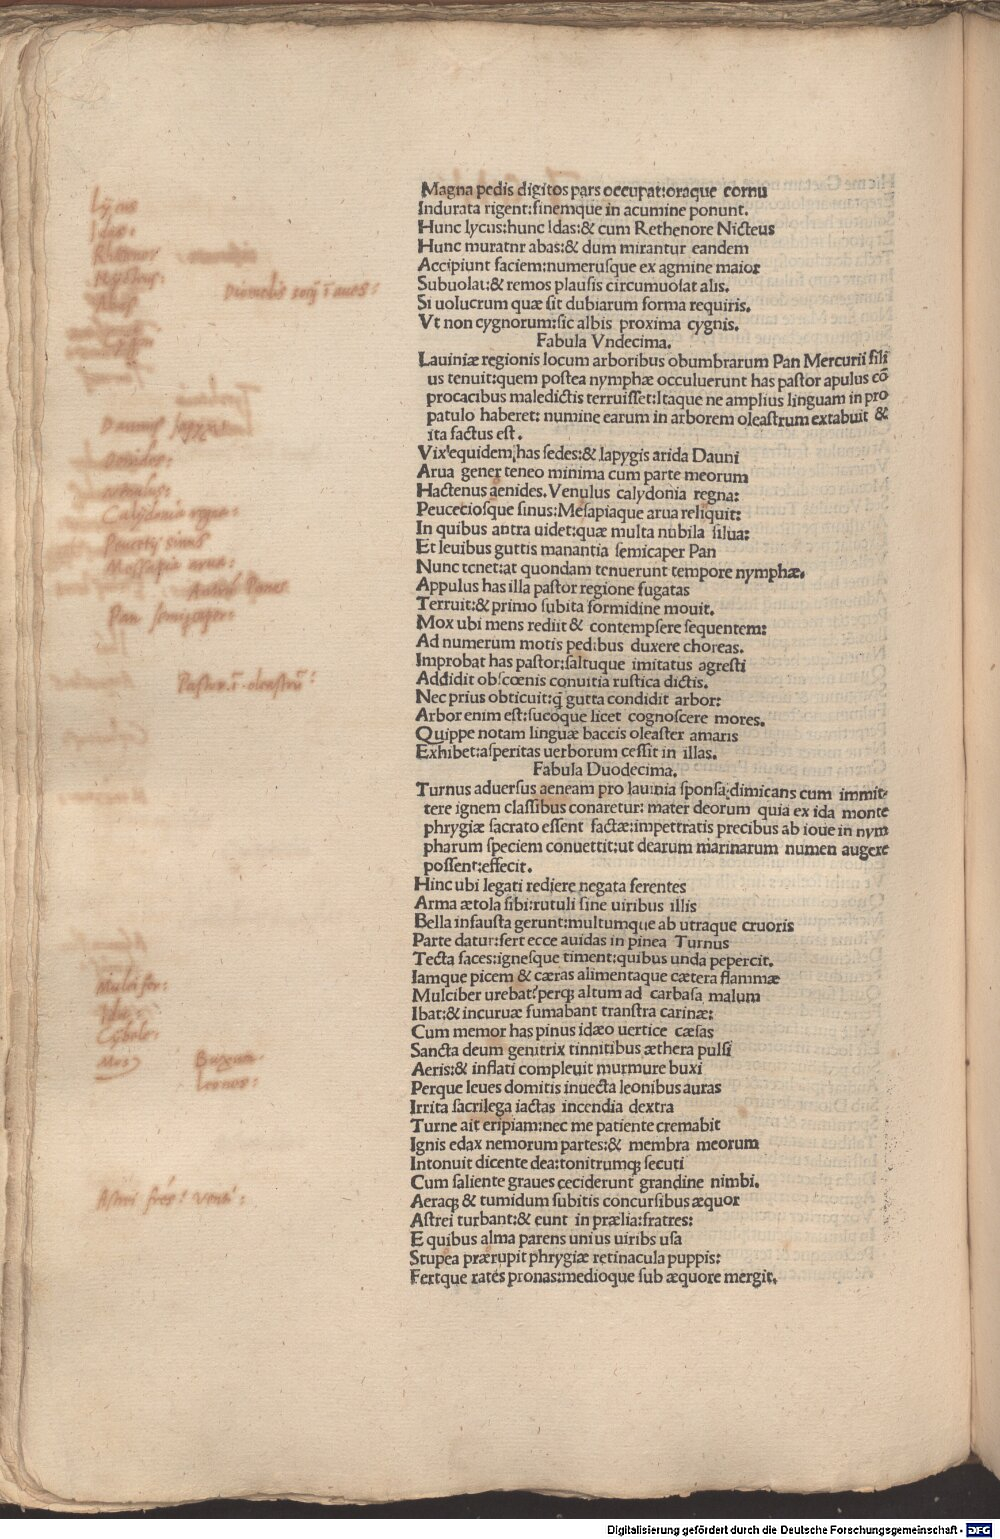 Magna pedis digitos pars occupat:oraque cornu
Indurata rigent:finemque in acumine ponunt.
Hunc lycus:hunc Idas:& cum Rethenore Nicteus
Hunc muratnr abas:& dum mirantur eandem
Accipiunt faciem:numerusque ex agmine maior
Subuolat:& remos plausis circumuolat alis.
Si uolucrum quæ sit dubiarum forma requiris.
Vt non cygnorum:sic albis proxima cygnis.
Fabula Vndecima.
Lauiniæ regionis locum arboribus obumbrarum Pan Mercurii fili
us tenuit:quem postea nymphæ occuluerunt has pastor apulus cō
procacibus maledictis terruisset:Itaque ne amplius linguam in pro
patulo haberet: numine earum in arborem oleastrum extabuit &
ita factus est.
Vix equidem has sedes:& Iapygis arida Dauni
Arua gener teneo minima cum parte meorum
Hactenus aenides. Venulus calydonia regna:
Peuceciosque sinus:Mesapiaque arua reliquit:
In quibus antra uidet:quæ multa nubila silua:
Et leuibus guttis manantia semicaper Pan
Nunc tenet:at quondam tenuerunt tempore nymphæ.
Appulus has illa pastor regione fugatas
Terruit:& primo subita formidine mouit.
Mox ubi mens rediit & contempsere sequentem:
Ad numerum motis pedibus duxere choreas.
Improbat has pastor:saltuque imitatus agresti
Addidit obscœnis conuitia rustica dictis.
Nec prius obticuit:q̃ gutta condidit arbor:
Arbor enim est:sucoque licet cognoscere mores.
Quippe notam linguæ baccis oleaster amaris
Exhibet:asperitas uerborum cessit in illas.
Fabula Duodecima.
Turnus aduersus aeneam pro lauinia sponsa:dimicans cum immit-
tere ignem classibus conaretur: mater deorum quia ex ida monte
phrygiæ sacrato essent factæ:impettratis precibus ab ioue in nym
pharum speciem conuettit:ut dearum marinarum numen augere
possent:effecit.
Hinc ubi legati rediere negata ferentes
Arma ætola sibi:rutuli sine uiribus illis
Bella infausta gerunt:multumque ab utraque cruoris
Parte datur:fert ecce auidas in pinea Turnus
Tecta faces:ignesque timent:quibus unda pepercit.
Iamque picem & cæras alimentaque cætera flammæ
Mulciber urebat:perq; altum ad carbasa malum
Ibat:& incuruæ fumabant transtra carinæ:
Cum memor has pinus idæo uertice cæsas
Sancta deum genitrix tinnitibus æthera pulsi
Aeris:& inflati compleuit murmure buxi
Perque leues domitis inuecta leonibus auras
Irrita sacrilega iactas incendia dextra
Turne ait eripiam:nec me patiente cremabit
Ignis edax nemorum partes:& membra meorum
Intonuit dicente dea:tonitrumq; secuti
Cum saliente graues ceciderunt grandine nimbi.
Aeraq; & tumidum subitis concursibus æquor
Astrei turbant:& eunt in prælia:fratres:
E quibus alma parens unius uiribs usa
Stupea prærupit phrygiæ retinacula puppis:
Fertque rates pronas:medioque sub æquore mergit.
Lycus
Idas:
Abas
Diomedis socij ī aues:
Daunus Iapyx
Calydonia regna:
Peucetij sinus
Messapia arua:
Pan semicaper:
Pastor ī oleastrū:
Mulcifer:
Ida:
Cybele:
Buxum.
Leones:
Astrei frēs: venti:
Digitalisierung gefördert durch die Deutsche Forschungsgemeinschaft - DFG